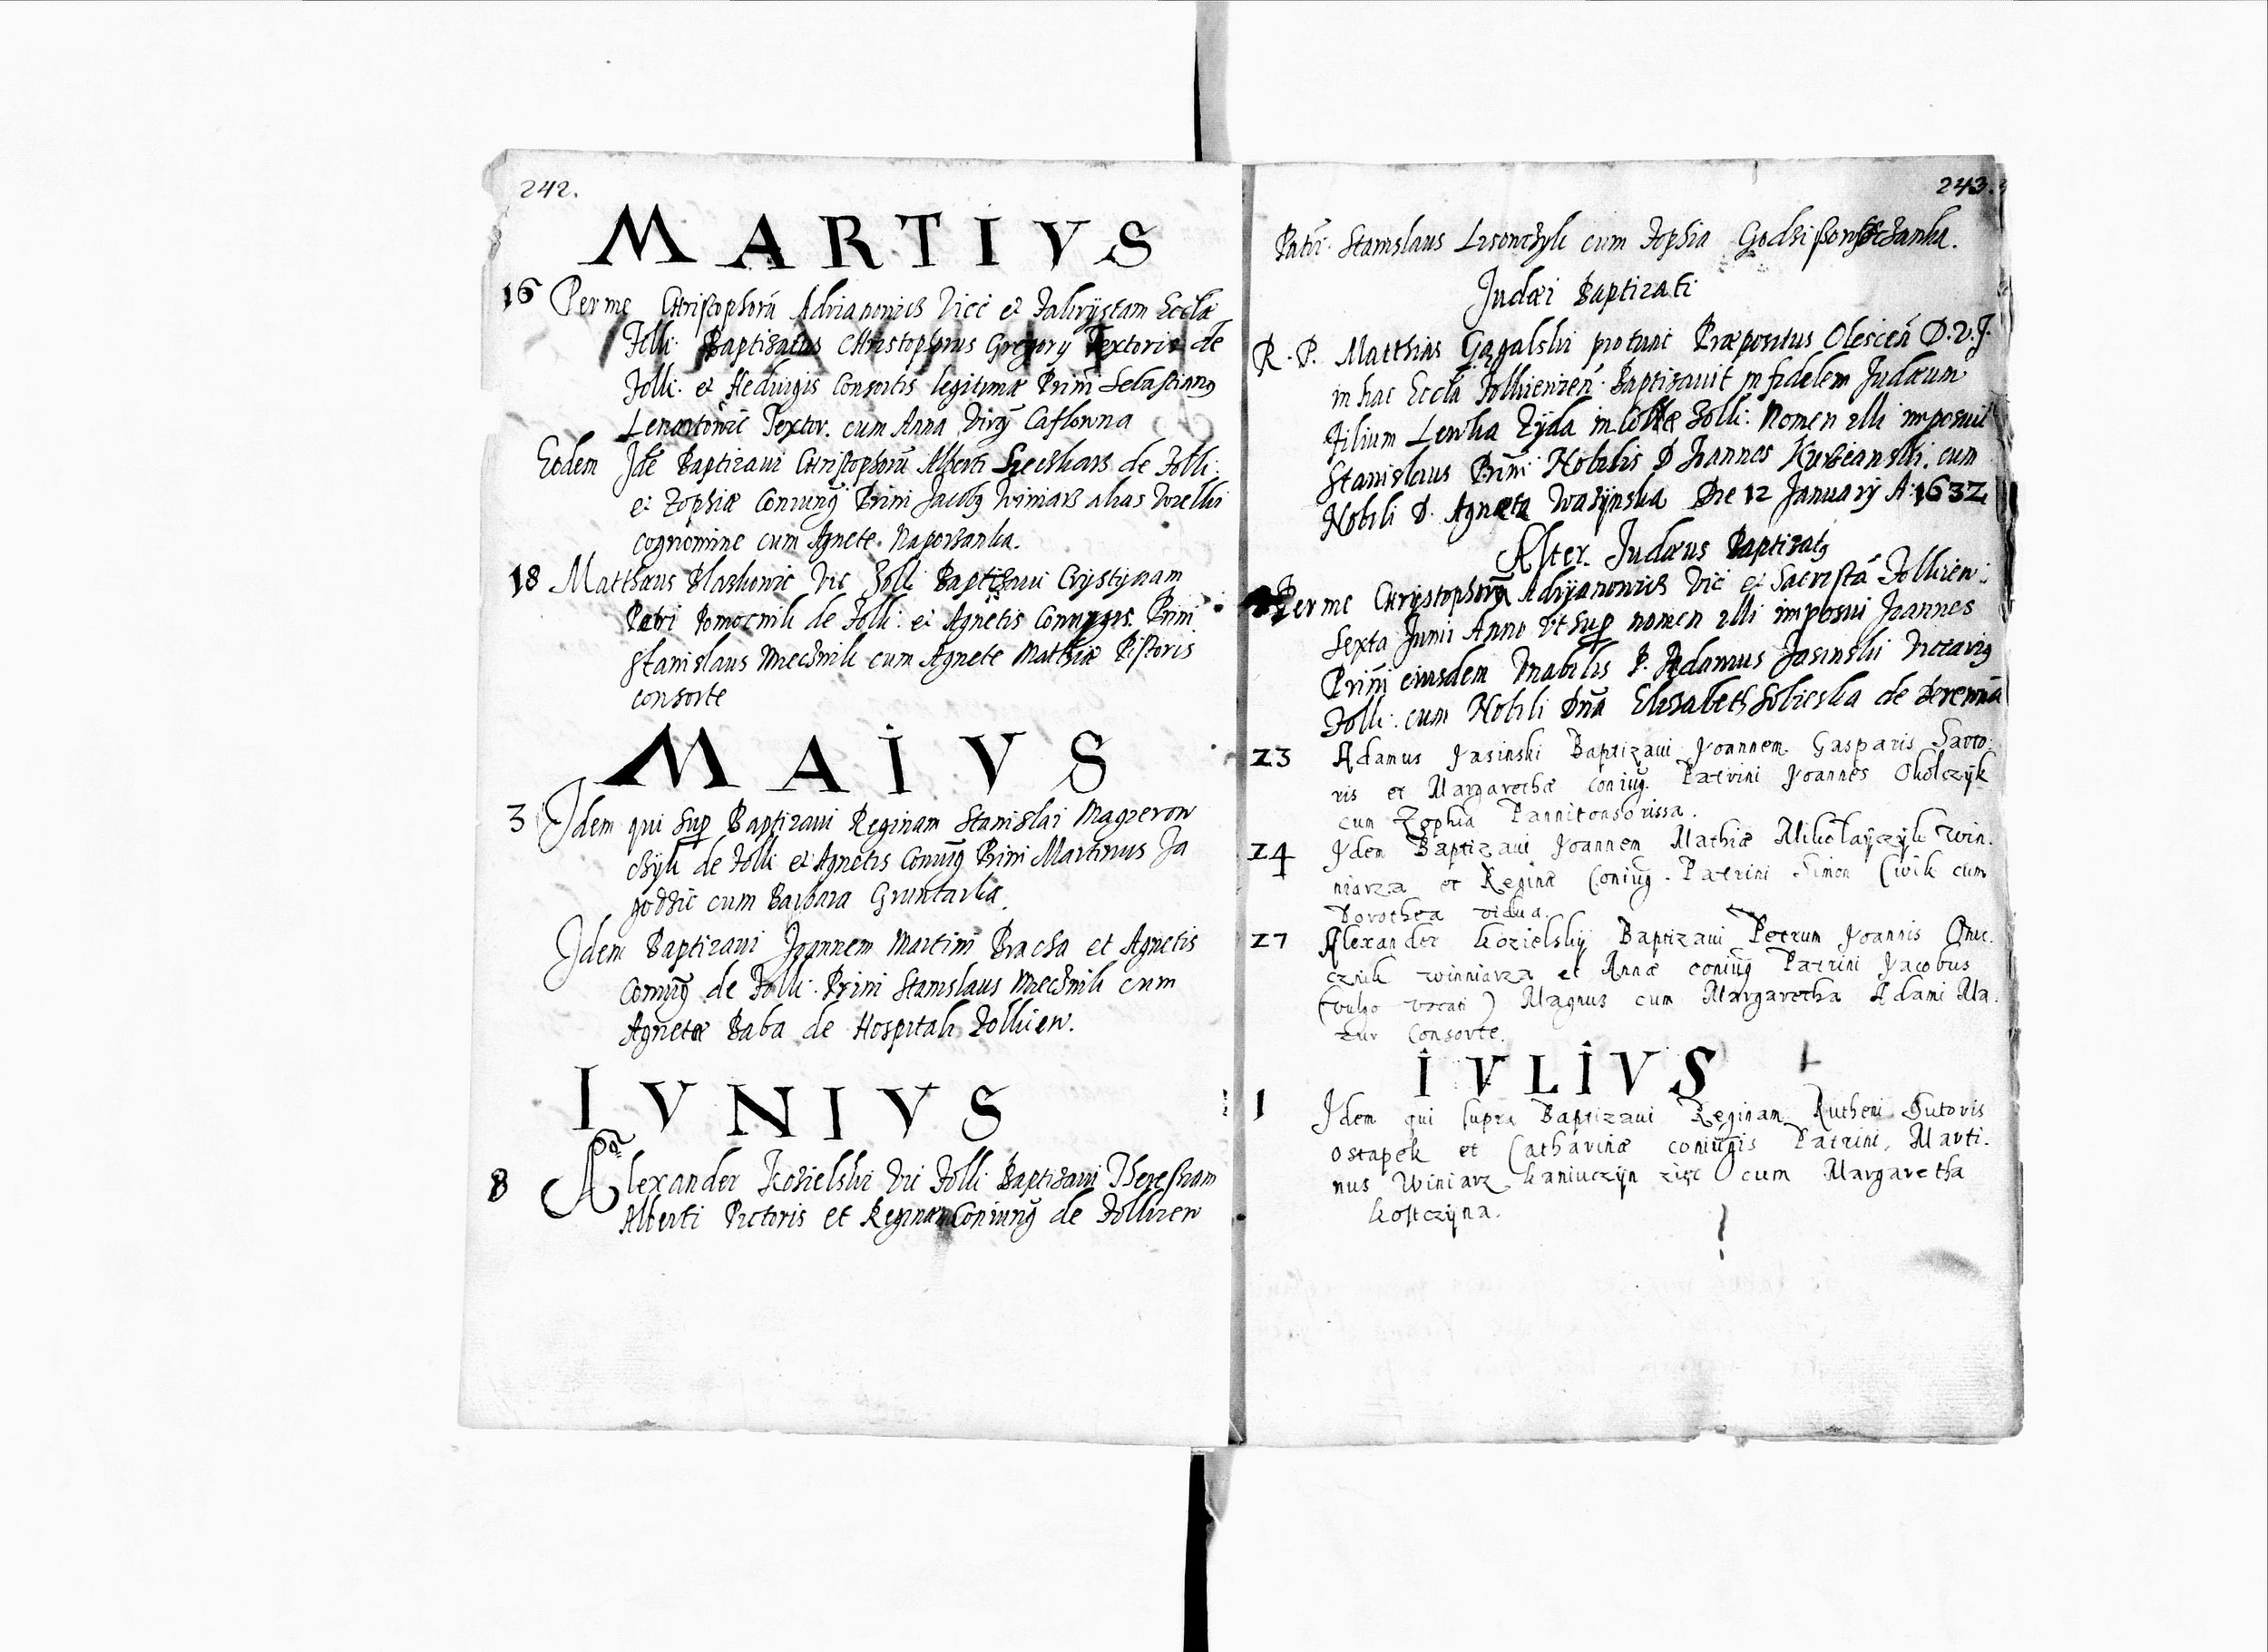 242.
MARTIVS
16 Per me Christophorũ Adrianowicz Vicc et Zakrÿstam Eccłæ
Zolki: Baptisatus Christophorus Gregorÿ Textoris de
Zolki: et Hedvigis Consortis legitimæ Prini Sebastiang
Textor. cum Anna
Eodem Baptizavi Christophorũ Alberti de Zolki:
et Zophiæ Coniung Prini Jacobg Winiarz alias
cognomine cum Agnete
18 Matthæus Vic Zolki Baptizaui Crystynam
Petri Pomocnik de Zolki: et Agnetis Coniugis. Prini
Stanislaus Miecznik cum Agnete Mathiæ Pistoris
consorte
MAIVS
3 Idem qui Sup Baptizaui Reginam Stanislai Magierow
czÿk de Zolki et Agnetis Coniug Prini Martinus Ja
cum Barbara Gruntarka
Idem Baptizaui Joannem Martini et Agnetis
Coniug de Zolki. Prini Stanislaus Miecznik cum
Agneta Baba de Hospitali Zolkiew.
IVNIVS
8 Alexander Kozielski Vic Zolki Baptizaui
Alberti Pictoris et Reginæ Coniung de Zolkiew
243.
Patri. Stanislaus cum Zophia
Judæi Baptizati
R. P. Matthias Gągalski pro tunc Præpositus Olescen̄ D. V. J.
in hac Eccła Zolkiewien̄. Baptizauit infidelem Judæum
filium Lewka Zÿda Zolki: Nomen illi imposuit
Stanislaus Prini Nobilis D Joannes cum
Nobili D. Agneta Die 12 Januarÿ A. 1632
Alter Judæus Baptizatg
Per me Christophorũ Adrÿanowicz Vic et Sacristã Zolkiew:
Sexta Junii Anno Vt Sup nomen illi imposui Joannes
Prini eiusdem P. Adamus Jasinski Vicarig
Zolki: cum Nobili Dnã Elisabeth Sobieska de
23 Adamus Jasinski Baptizaui Joannem Gasparis Sarto.
ris et Margarethæ Coniug. Patrini Joannes Okolczÿk
cum Zophia Pannitonsorissa.
24 Idem Baptizaui Joannem Mathiæ Mikołaÿczÿk Win.
niarza et Reginæ Coniug. Patrini Simon Ciwik cum
Dorothea vidua.
27 Alexander Kozielskÿ Baptizaui Petrum Joannis
cznik winniarza et Annæ coniug Patrini Jacobus
(vulgo vocati) Magnus cum Margaretha Adami Ma.
zur Consorte.
IVLIVS
1 Idem qui supra Baptizaui Reginam Rutheni Sutoris
Ostapek et Catharinæ coniugis Patrini, Marti.
nus Winiarz Kaniuczÿn zięc cum Margaretha
Kostczÿna.